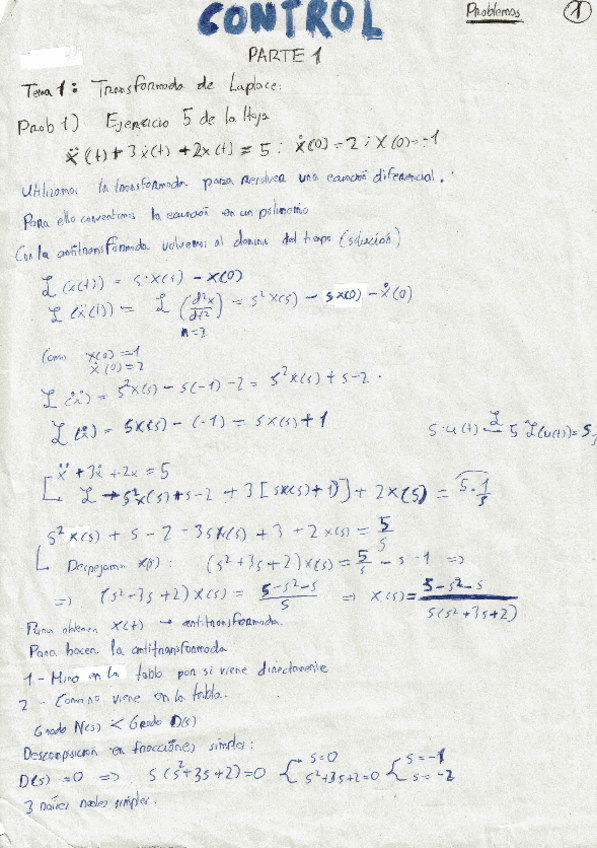 CONTROL
Problemas 1
PARTE 1
Tema 1: Transformada de Laplace.
Prob 1) Ejercicio 5 de la Hoja
ẍ(t) + 3ẋ(t) + 2x(t) = 5 ; ẋ(0) = 2 ; x(0) = -1
Utilizamos la transformada para resolver una ecuación diferencial.
Para ello convertimos la ecuación en un polinomio
Con la antitransformada volvemos al dominio del tiempo (solución)
ℒ(ẋ(t)) = s·x(s) - x(0)
ℒ(ẍ(t)) = ℒ(d²x/dt²) = s²x(s) - sx(0) - ẋ(0)
n=2
Como x(0) = -1
ẋ(0) = 2
ℒ(ẍ) = s²x(s) - s(-1) - 2 = s²x(s) + s - 2
ℒ(ẋ) = sx(s) - (-1) = sx(s) + 1
5·u(t) ℒ 5 ℒ(u(t)) =
ẍ + 3ẋ + 2x = 5
ℒ → s²x(s) + s - 2 + 3[sx(s) + 1] + 2x(s) = 5·1/s
s²x(s) + s - 2 - 3sx(s) + 3 - 2x(s) = 5/s
Despejamos x(s): (s² + 3s + 2)x(s) = 5/s - s - 1 =>
=> (s² - 3s + 2)x(s) = 5-s²-s/s => x(s) = 5-s²-s/s(s²+3s+2)
Para obtener x(t) → antitransformada.
Para hacer la antitransformada
1 - Miro en la tabla por si viene directamente
2 - Como no viene en la tabla.
Grado N(s) < Grado D(s)
Descomposición en fracciones simples:
D(s) = 0 => s(s²+3s+2) = 0 { s=0
s²+3s+2=0 { s=-1
s=-2
3 raíces reales simples.